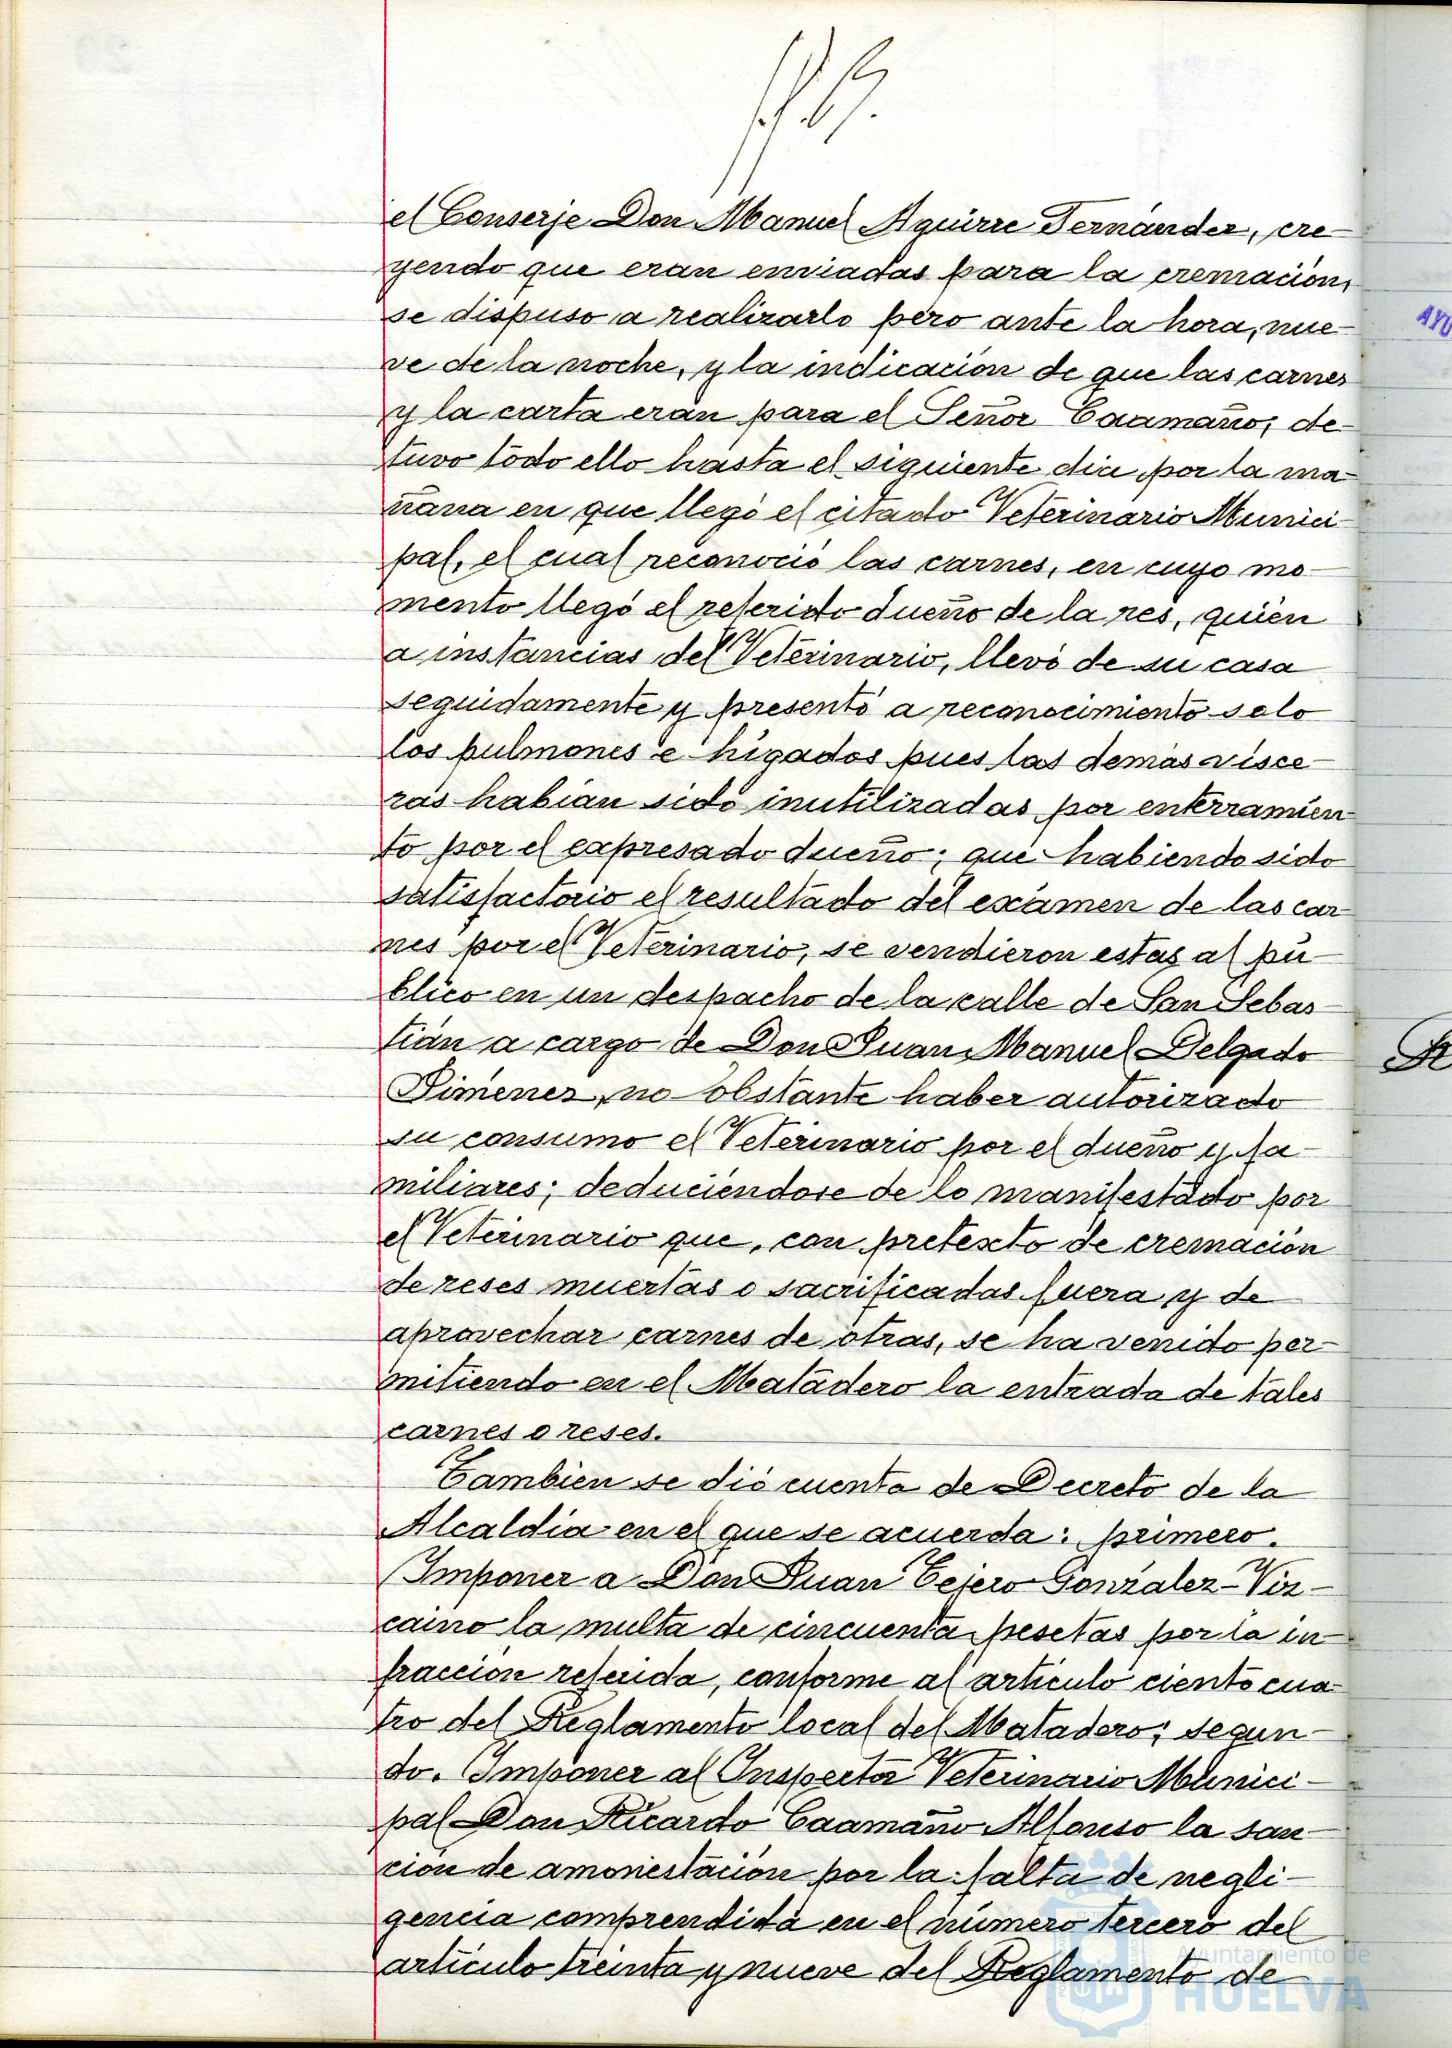 el Conserje Don Manuel Aguirre Fernández, cre-
yendo que eran enviadas para la cremación,
se dispuso a realizarlo pero ante la hora, nue-
ve de la noche, y la indicación de que las carnes
y la carta eran para el Señor Caamaño, de-
tuvo todo ello hasta el siguiente dia por la ma-
ñana en que llegó el citado Veterinario Munici-
pal, el cual reconoció las carnes, en cuyo mo-
mento llegó el referido dueño de la res, quién
a instancias del Veterinario, llevó de su casa
seguidamente y presentó a reconocimiento solo
los pulmones e hígados pues las demás vísce-
ras habían sido inutilizadas por enterramien-
to por el expresado dueño; que habiendo sido
satisfactorio el resultado del exámen de las car-
nes por el Veterinario, se vendieron estas al pú-
blico en un despacho de la calle de San Sebas-
tián a cargo de Don Juan Manuel Delgado
Jiménez, no obstante haber autorizado
su consumo el Veterinario por el dueño y fa-
miliares; deduciéndose de lo manifestado por
el Veterinario que, con pretexto de cremación
de reses muertas o sacrificadas fuera y de
aprovechar carnes de otras, se ha venido per-
mitiendo en el Matadero la entrada de tales
carnes o reses.
Tambien se dió cuenta de Decreto de la
Alcaldía en el que se acuerda: primero.
Imponer a Don Juan Tejero González-Viz-
caino la multa de cincuenta pesetas por la in-
fracción referida, conforme al artículo ciento cua-
tro del Reglamento local del Matadero; segun-
do. Imponer al Inspector Veterinario Munici-
pal Don Ricardo Caamaño Alfonso la san-
ción de amonestación por la falta de negli-
gencia comprendida en el número tercero del
artículo treinta y nueve del Reglamento de
Ayuntamiento de
HUELVA
AYU